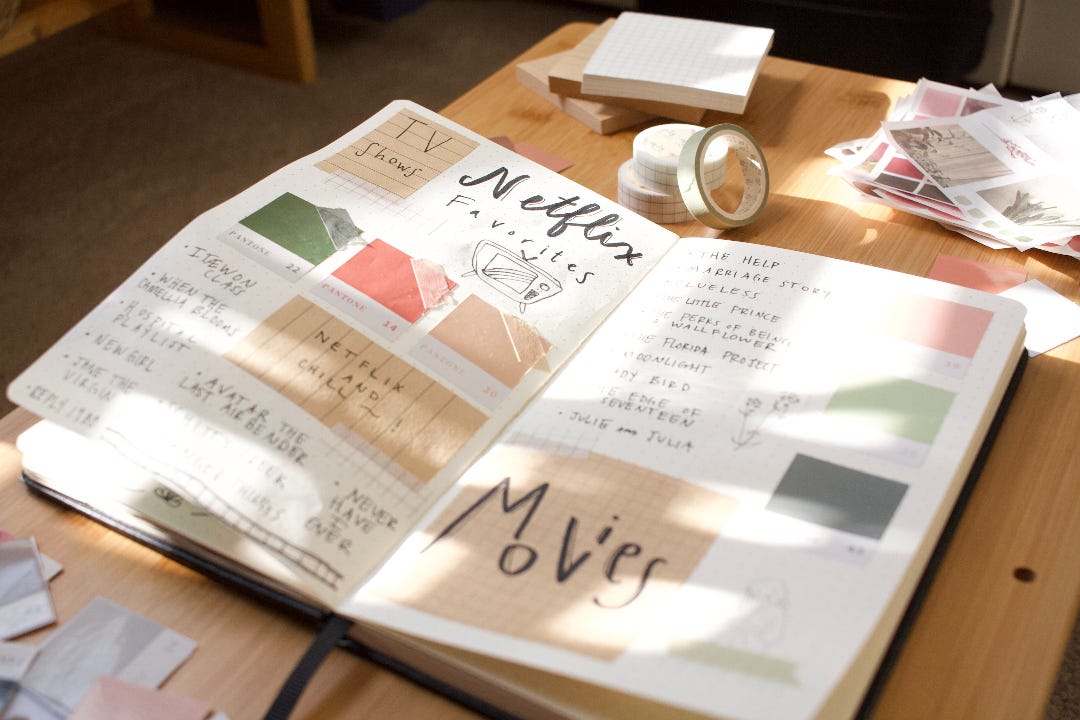 TV
Shows
Netflix
Favorites
PANTONE 22
PANTONE 14
PANTONE 30
• ITEWON
CLASS
• WHEN THE
CAMELLIA BLOOMS
• HOSPITAL
PLAYLIST
• NEW GIRL
• JANE THE
VIRGIN
• REPLY 1988
NETFLIX
AND
CHILL!
~
• AVATAR THE
LAST AIRBENDER
• NEVER
HAVE
I
EVER
• THE HELP
• MARRIAGE STORY
CLUELESS
THE LITTLE PRINCE
THE PERKS OF BEING
A WALLFLOWER
THE FLORIDA PROJECT
MOONLIGHT
DY BIRD
E EDGE OF
SEVENTEEN
• JULIE AND JULIA
Movies